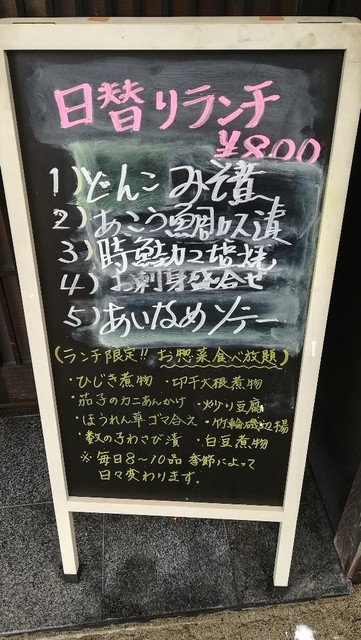 日替りランチ
¥800
1) どんこ みそ煮
2) あこう鯛カス漬
3) 時鮭カマ塩焼
4) お刺身盛合せ
5) あいなめソテー
(ランチ限定!! お惣菜食べ放題)
・ひじき煮物 ・切干大根煮物
・茄子のカニあんかけ ・炒り豆腐
・ほうれん草ゴマ合え ・竹輪磯辺揚
・数の子わさび漬 ・白豆煮物
※毎日8〜10品 季節によって
日々変わります。